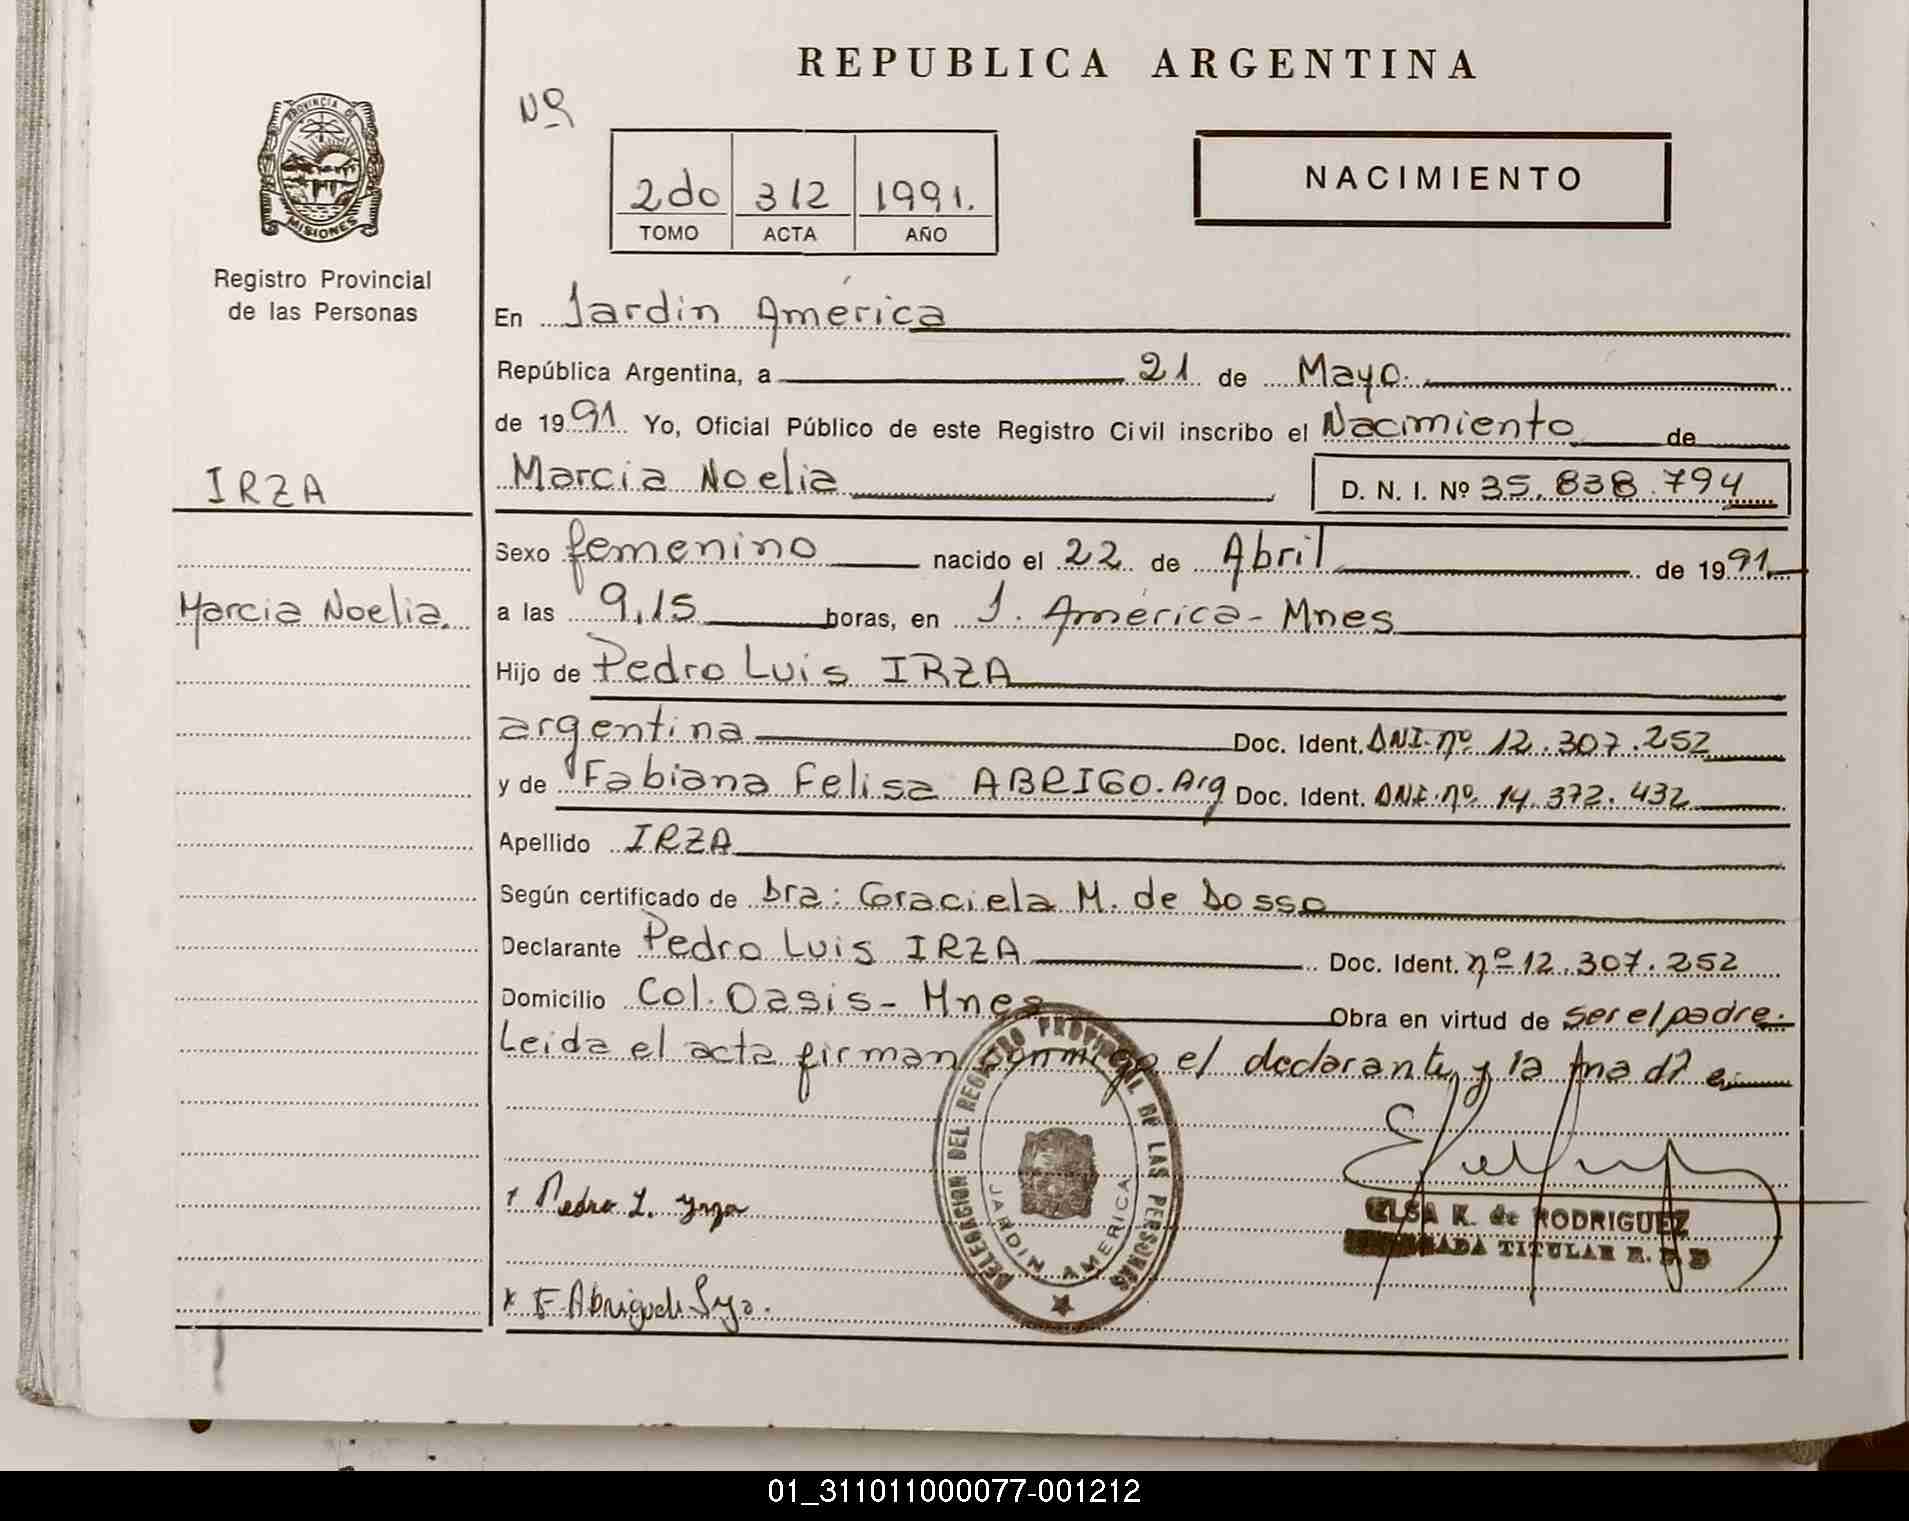 REPUBLICA ARGENTINA
Nº
PROVINCIA DE
MISIONES
Registro Provincial
de las Personas
2do 312 1991.
TOMO ACTA AÑO
NACIMIENTO
En Jardin América
República Argentina, a 21 de Mayo.
de 1991 Yo, Oficial Público de este Registro Civil inscribo el Nacimiento de
IRZA
Marcia Noelia D. N. I. Nº 35.838.794
Sexo femenino nacido el 22 de Abril de 1991
Marcia Noelia.
a las 9,15 horas, en J. América - Mnes
Hijo de Pedro Luis IRZA
argentina Doc. Ident. DNI. nº 12.307.252
y de Fabiana Felisa ABRIGO. Arg Doc. Ident. DNI. nº 14.372.432
Apellido IRZA
Según certificado de Dra: Graciela M. de Dosso
Declarante Pedro Luis IRZA Doc. Ident. nº 12.307.252
Domicilio Col. Oasis - Mnes Obra en virtud de ser el padre.
Leida el acta firman conmigo el declarante y la madre
DELEGACION DEL REGISTRO PROVINCIAL DE LAS PERSONAS
JARDIN AMERICA
Pedro L. Irza
ELSA K. de RODRIGUEZ
TITULAR R.
x F. Abrigo de
01_311011000077-001212